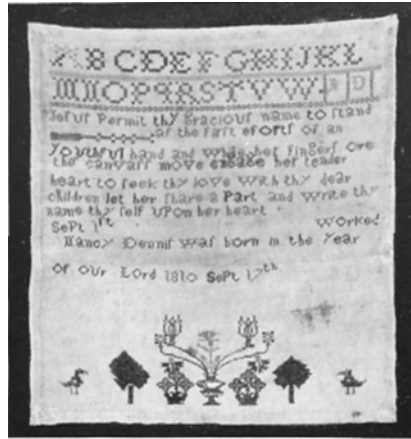 ABCDEFGHIJKL
MNOPQRSTVW
Jesus Permit thy Gracious name to stand
as the first efforts of an
Youthful hand and while her fingers ore
the canvass move engage her tender
heart to seek thy love with thy dear
children let her share a Part and write thy
name thy self upon her heart
Sept 1st worked
Nancy Dennis was born in the Year
of our Lord 1810 Sept 17th